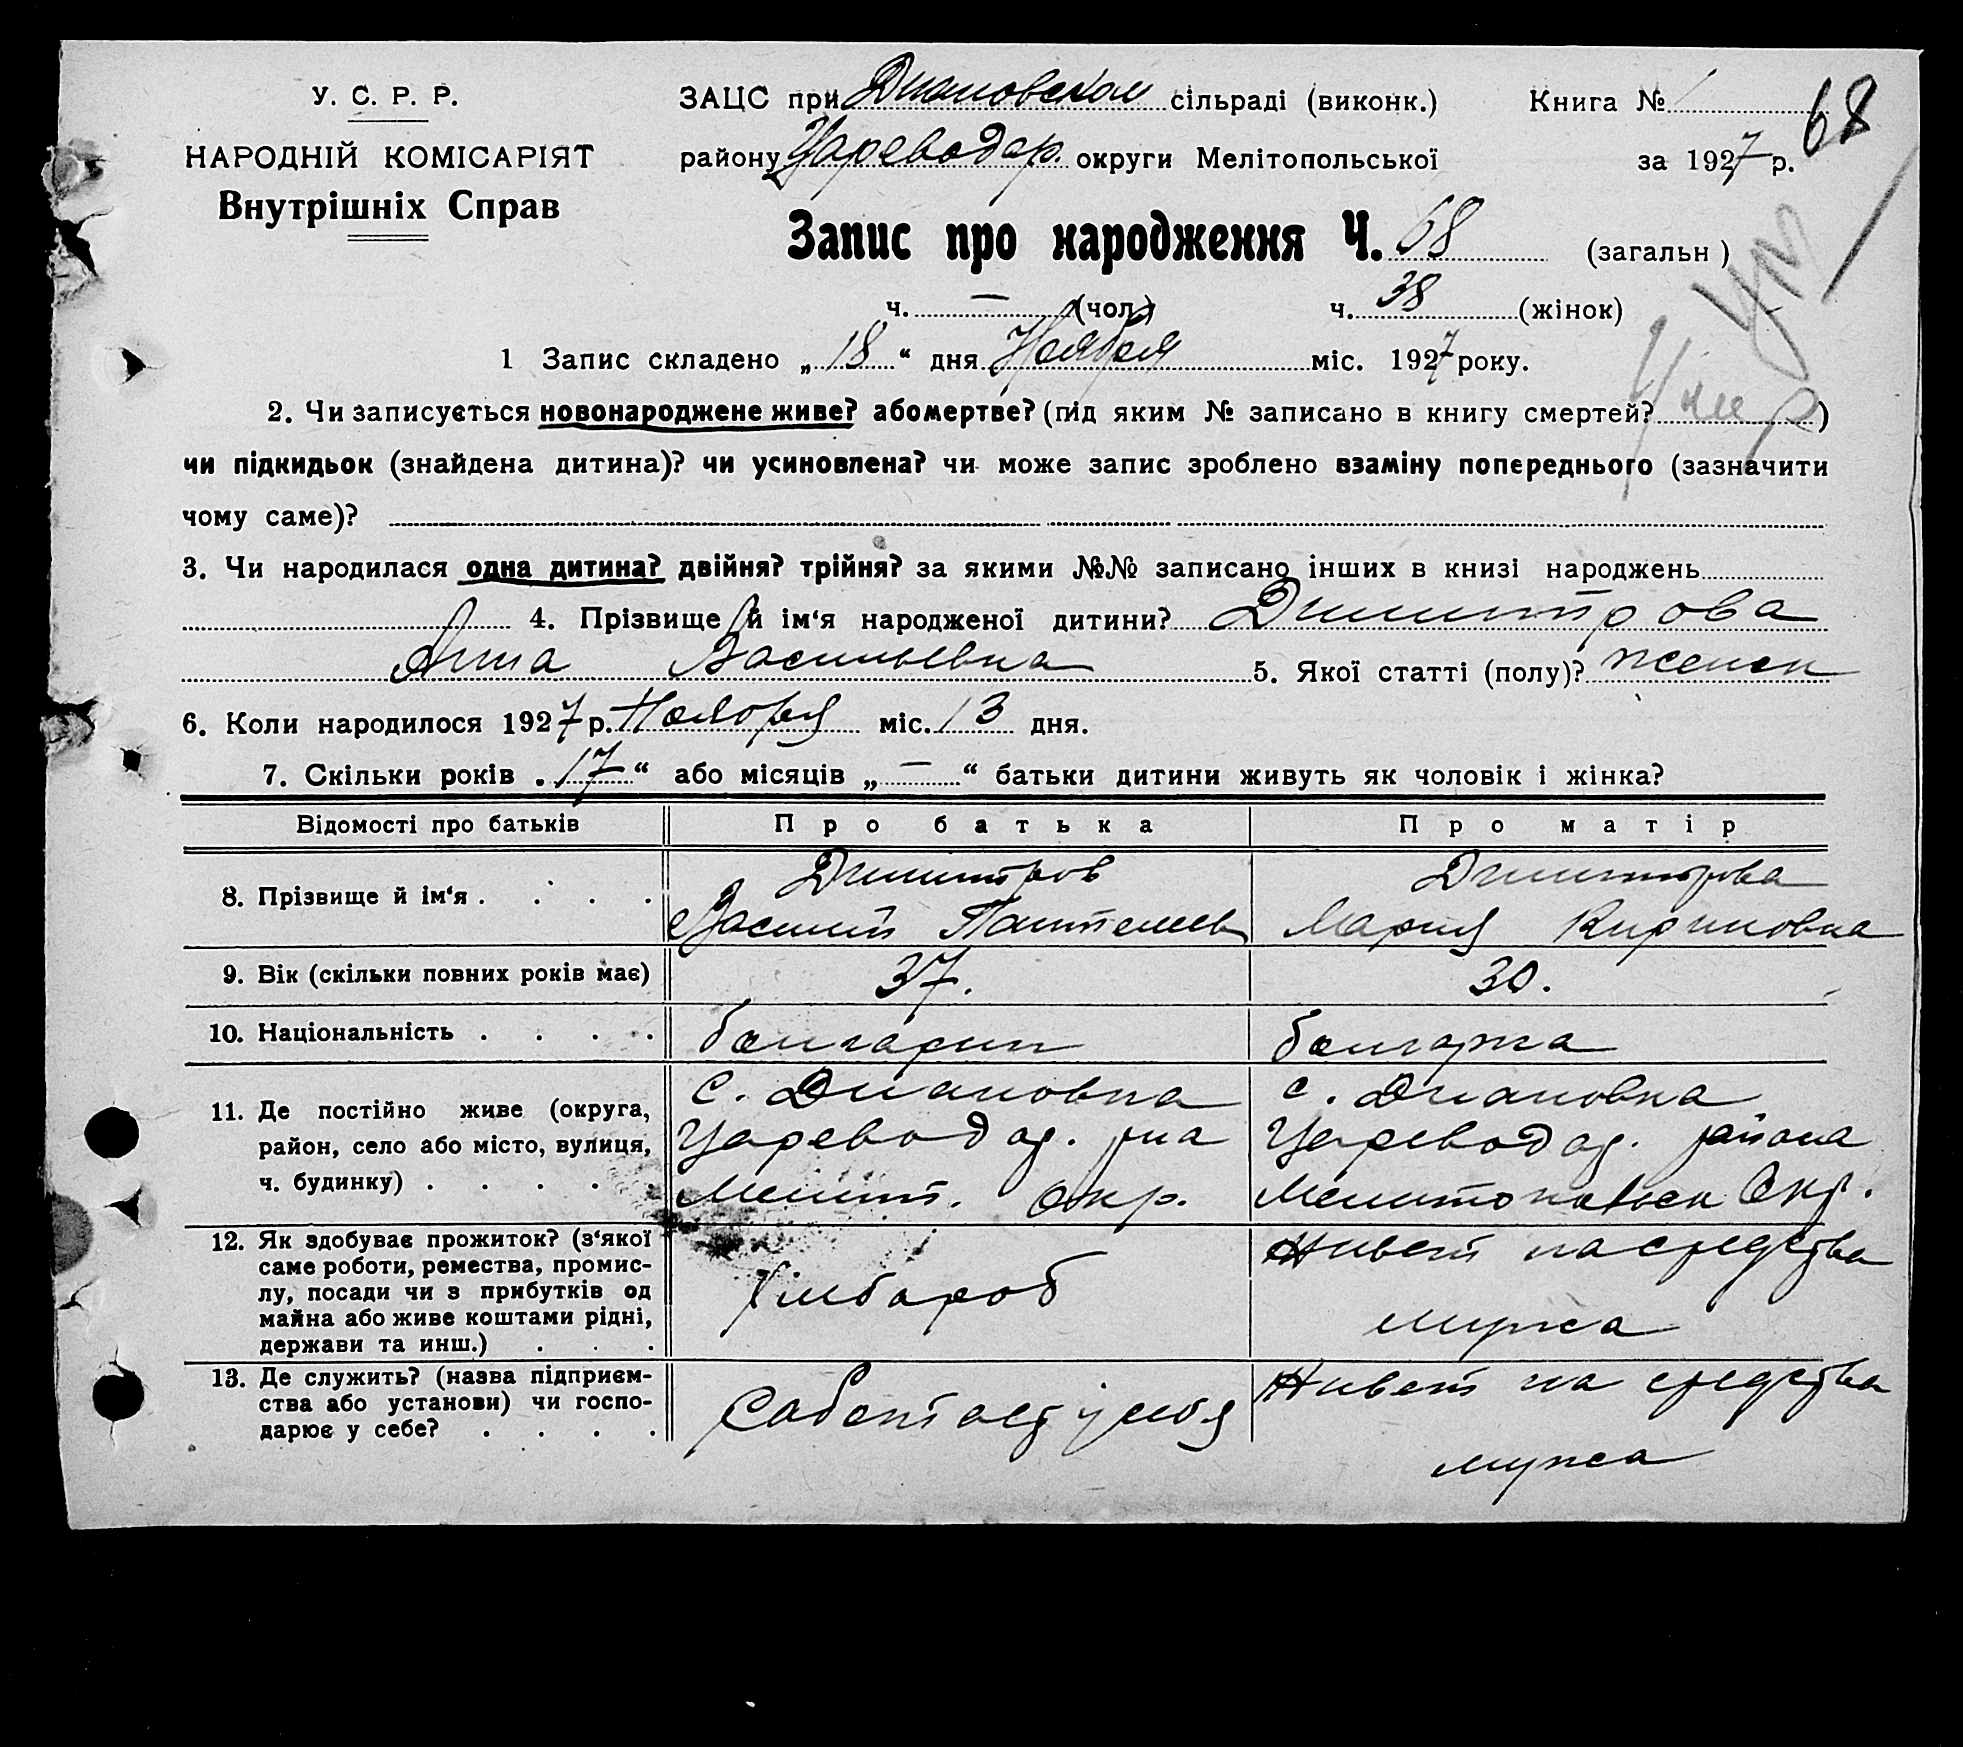 У. С. Р. Р.
НАРОДНІЙ КОМІСАРІЯТ
Внутрішніх Справ
ЗАЦС при Диановском сільраді (виконк.) Книга № 1
68
району Цареводар. округи Мелітопольської за 1927 р.
Запис про народження Ч. 68 (загальн)
ч. — (чол.) ч. 38 (жінок)
1 Запис складено „18“ дня Ноября міс. 1927 року.
2. Чи записується новонароджене живе? або мертве? (під яким № записано в книгу смертей? )
чи підкидьок (знайдена дитина)? чи усиновлена? чи може запис зроблено взаміну попереднього (зазначити
чому саме)?
3. Чи народилася одна дитина? двійня? трійня? за якими №№ записано інших в книзі народжень
4. Прізвище й ім‘я народженої дитини? Димитрова
Анна Васильевна 5. Якої статті (полу)? женск
6. Коли народилося 1927 р. Ноября міс. 13 дня.
7. Скільки років „17“ або місяців „—“ батьки дитини живуть як чоловік і жінка?
Відомості про батьків Про батька Про матір
8. Прізвище й ім‘я . . . . Димитров Василий Пантелеев Димитрова Мария Кириловна
9. Вік (скільки повних років має) 37. 30.
10. Національність . . . . болгарин болгарка
11. Де постійно живе (округа, с. Диановка с. Диановка
район, село або місто, вулиця, Цареводар. р-на Цареводар. района
ч. будинку) . . . . . Мелит. Окр. Мелитопольск Окр.
12. Як здобуває прожиток? (з‘якої
саме роботи, ремества, промис-
лу, посади чи з прибутків од
майна або живе коштами рідні,
держави та инш.) . . .
Хлебороб
Живет на средства
мужа
13. Де служить? (назва підприєм-
ства або установи) чи госпо-
дарює у себе? . . . .
у себя
Живет на средства
мужа